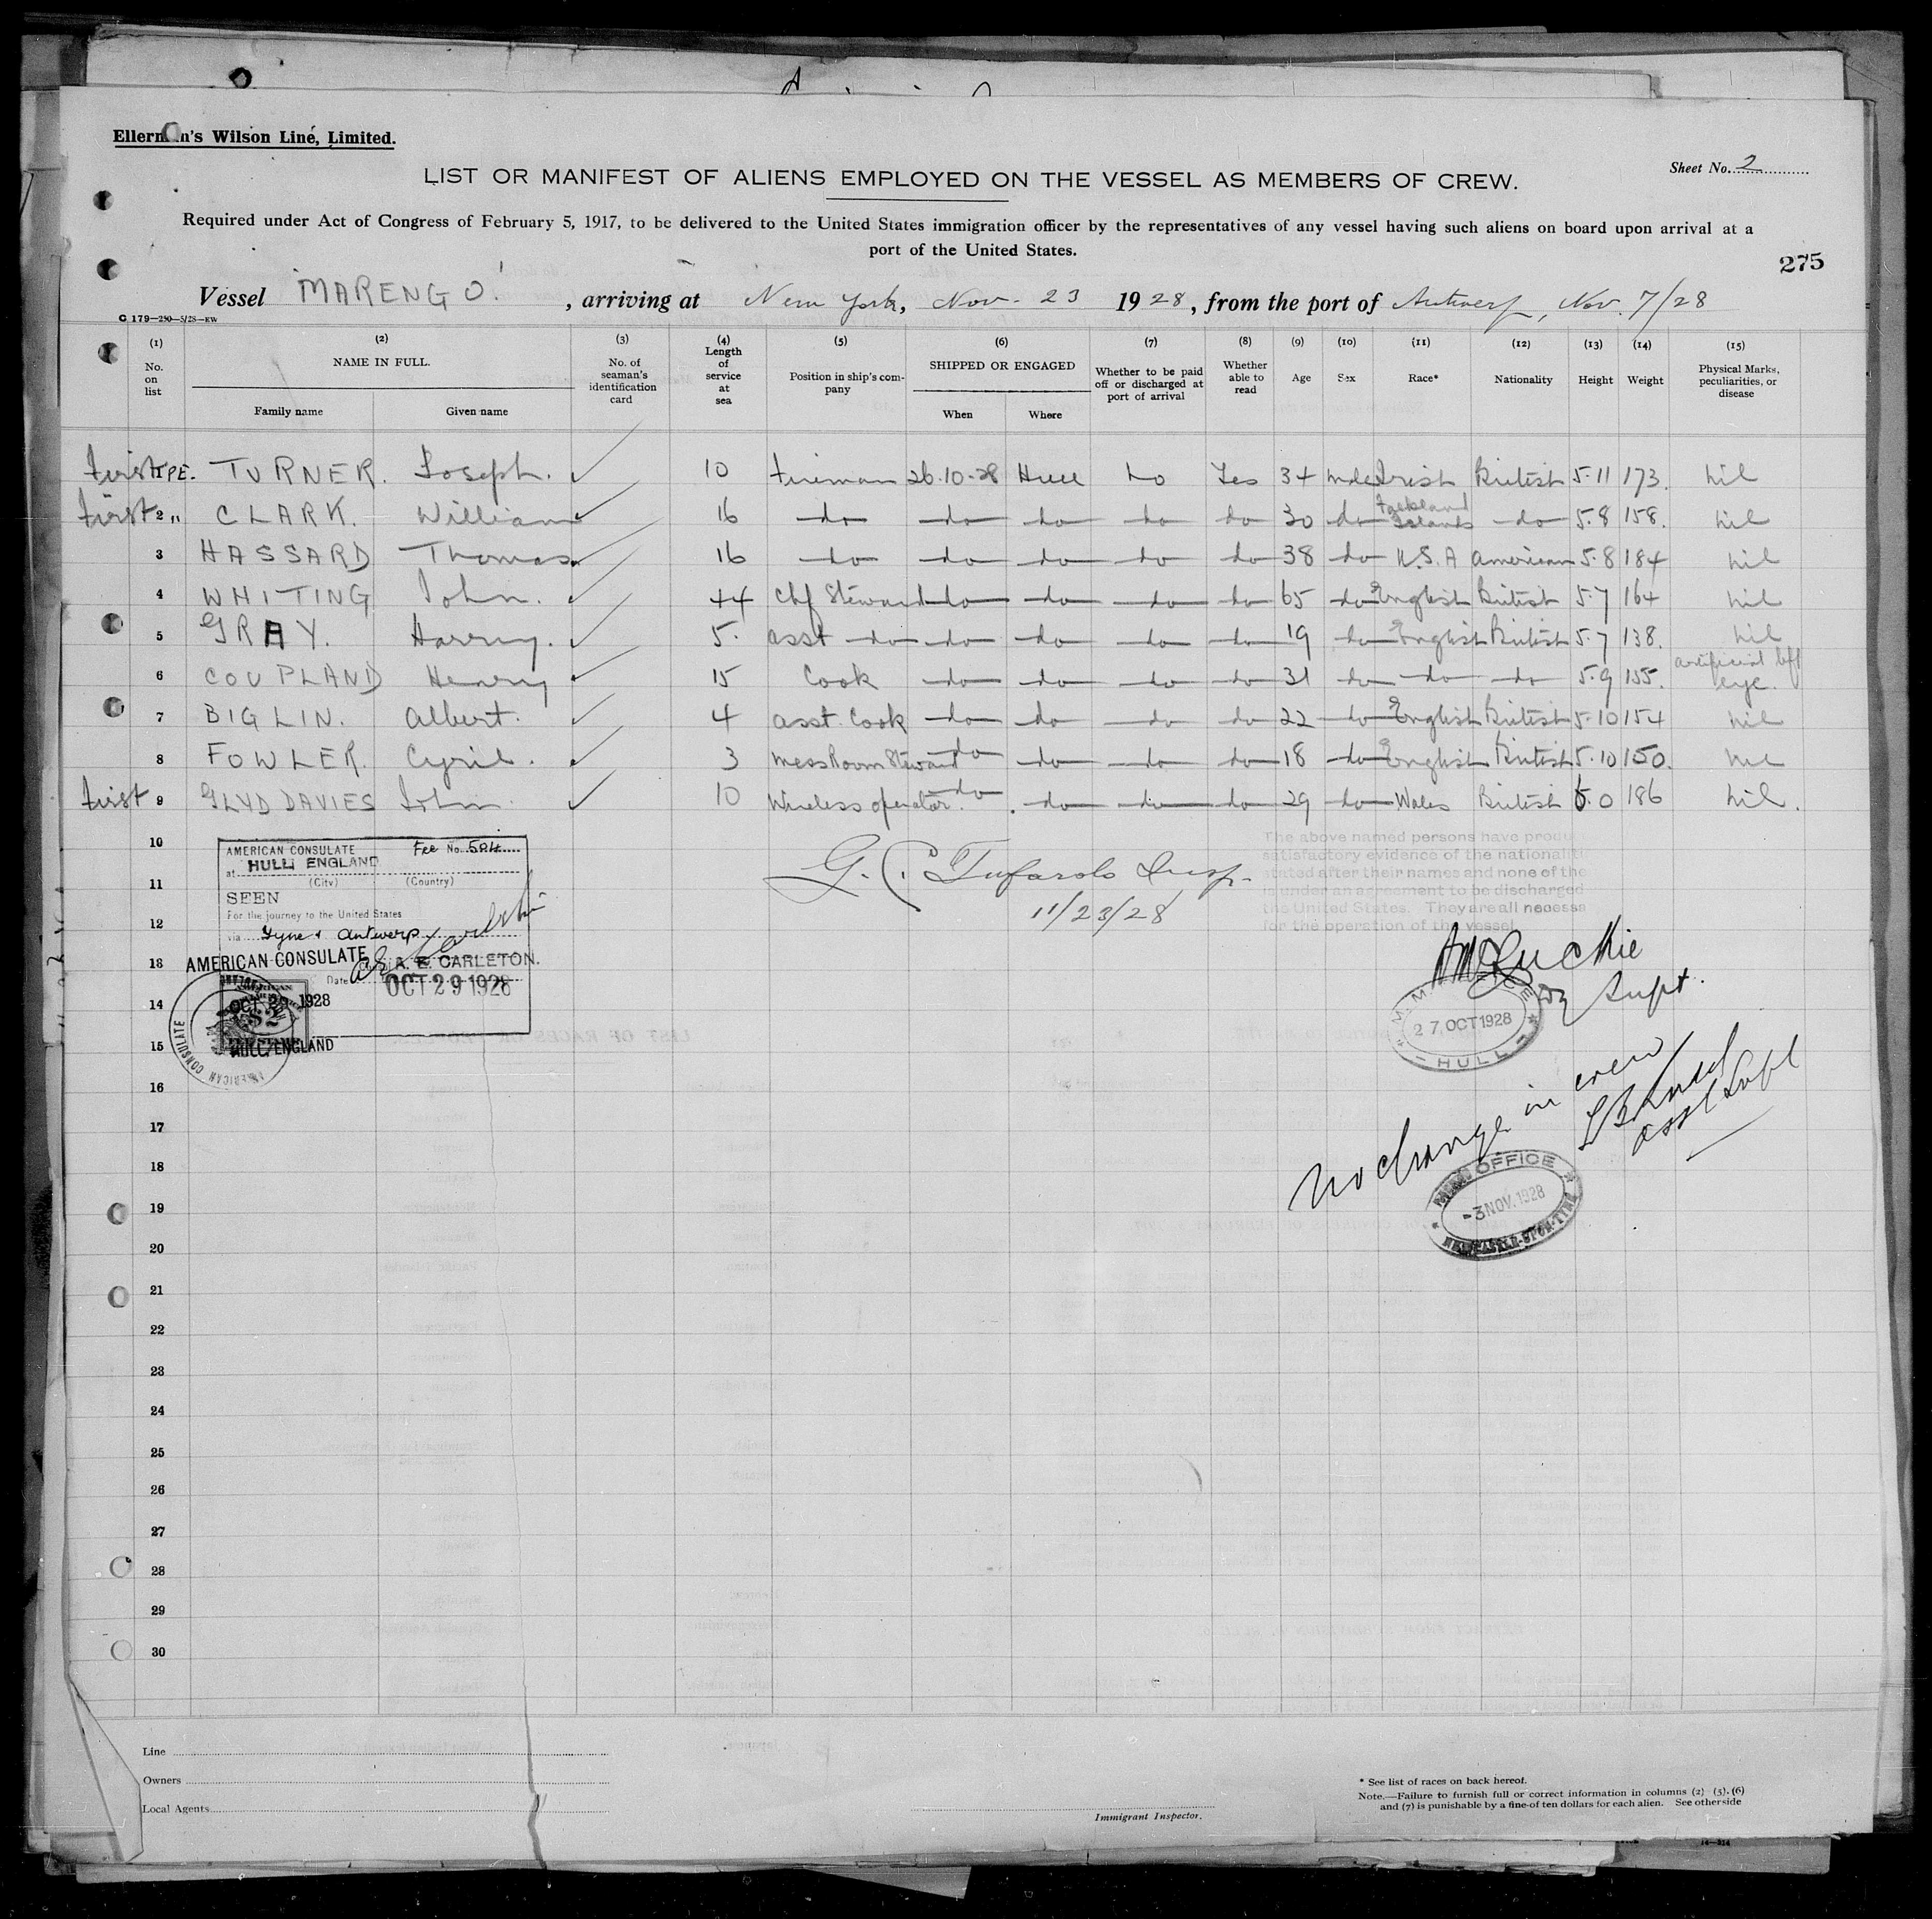 Ellerman's Wilson Line, Limited.
Sheet No. 2
LIST OR MANIFEST OF ALIENS EMPLOYED ON THE VESSEL AS MEMBERS OF CREW.
Required under Act of Congress of February 5, 1917, to be delivered to the United States immigration officer by the representatives of any vessel having such aliens on board upon arrival at a
port of the United States.
275
Vessel "MARENGO", arriving at New York, Nov. 23 1928, from the port of Antwerp, Nov. 7/28
C 179—250—5/28—EW
(1) (2) (3) (4) (5) (6) (7) (8) (9) (10) (11) (12) (13) (14) (15)
No. on list NAME IN FULL. Family name Given name No. of seaman's identification card Length of service at sea Position in ship's company SHIPPED OR ENGAGED When Where Whether to be paid off or discharged at port of arrival Whether able to read Age Sex Race* Nationality Height Weight Physical Marks, peculiarities, or disease
First 1 P.E. TURNER. Joseph. ✓ 10 Fireman 26.10.28 Hull No Yes 34 male Irish British 5.11 173. Nil
First 2 " CLARK. William ✓ 16 do do do do do 30 do Falkland Islands do 5.8 158. Nil
3 HASSARD Thomas ✓ 16 do do do do do 38 do U.S.A American 5.8 184 Nil
4 WHITING John. ✓ 44 Chf Steward do do do do 65 do English British 5.7 164 Nil
5 GRAY. Harry. ✓ 5. asst do do do do do 19 do English British 5.7 138. Nil
6 COUPLAND Henry ✓ 15 Cook do do do do 31 do do do 5.9 155. artificial left eye.
7 BIGLIN. Albert. ✓ 4 asst. Cook do do do do 22 do English British 5.10 154 Nil
8 FOWLER. Cyril. ✓ 3 Mess Room Steward do do do do 18 do English British 5.10 150. Nil
First 9 GLYD DAVIES John. ✓ 10 Wireless operator. do do do do 29 do Wales British 6.0 186 Nil.
10
11
12
13
14
15
16
17
18
19
20
21
22
23
24
25
26
27
28
29
30
AMERICAN CONSULATE Fee No. 504
at HULL ENGLAND
(City) (Country)
SEEN
For the journey to the United States
via Tyne & Antwerp
AMERICAN CONSULATE
A. E. CARLETON.
Date OCT 29 1928
OCT 29 1928
HULL, ENGLAND
AMERICAN CONSULATE
G. C. Tufarolo Insp.
11/23/28
The above named persons have produ
satisfactory evidence of the nationaliti
stated after their names and none of the
is under an agreement to be discharged
the United States. They are all necessa
for the operation of the vessel
Supt.
27 OCT 1928
HULL
No change in crew
asst Supt
OFFICE
-3 NOV. 1928
NEWCASTLE-UPON-TYNE
Line
Owners
Local Agents
Immigrant Inspector.
* See list of races on back hereof.
Note.—Failure to furnish full or correct information in columns (2) (3), (6)
and (7) is punishable by a fine of ten dollars for each alien. See otherside